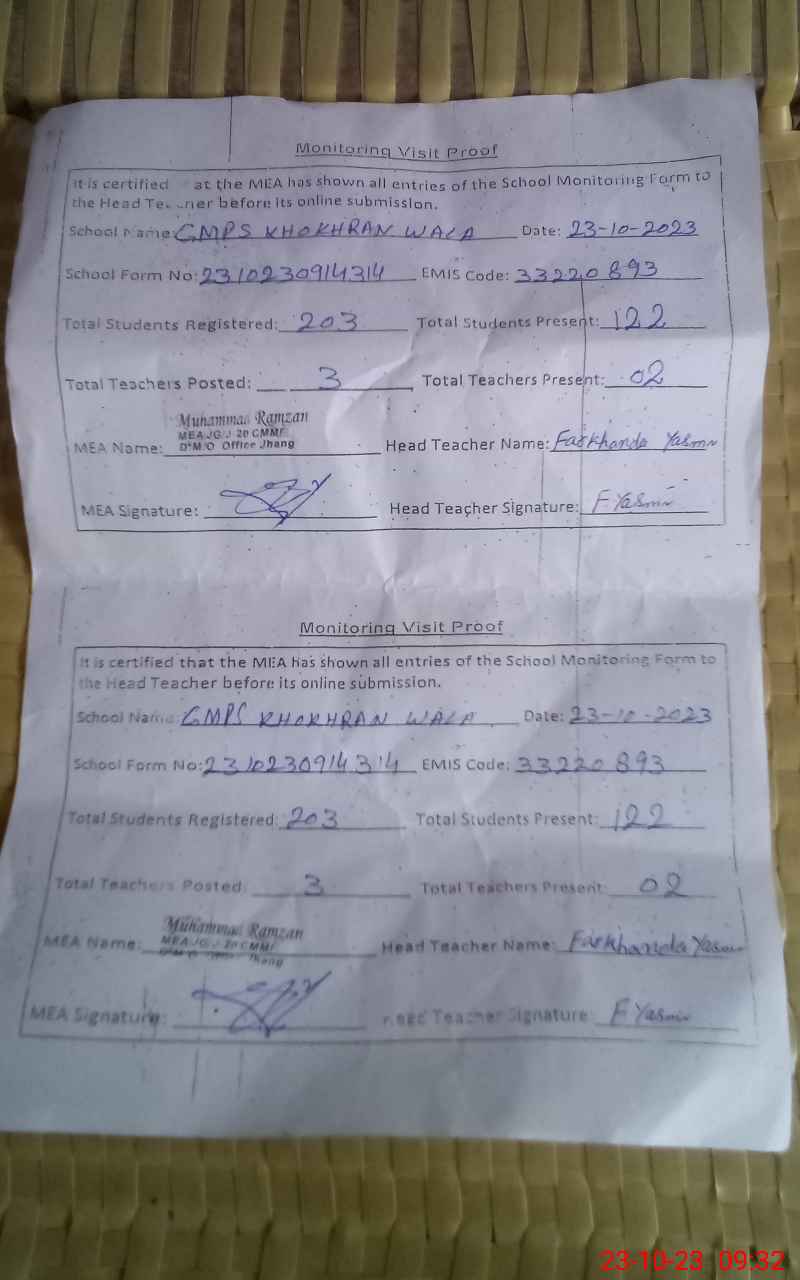 Monitoring Visit Proof
It is certified at the MEA has shown all entries of the School Monitoring Form to
the Head Teacher before its online submission.
School Name: GMPS KHOKHRAN WALA Date: 23-10-2023
School Form No: 2310230914314 EMIS Code: 33220893
Total Students Registered: 203 Total Students Present: 122
Total Teachers Posted: 3 Total Teachers Present: 02
Muhammad Ramzan
MEA JG/J-20 CMMF
D.M.O Office Jhang
MEA Name: Head Teacher Name: Farkhanda Yasmn
MEA Signature: Head Teacher Signature: F. Yasmin
Monitoring Visit Proof
It is certified that the MEA has shown all entries of the School Monitoring Form to
the Head Teacher before its online submission.
School Name: GMPS KHOKHRAN WALA Date: 23-10-2023
School Form No: 2310230914314 EMIS Code: 33220893
Total Students Registered: 203 Total Students Present: 122
Total Teachers Posted: 3 Total Teachers Present: 02
Muhammad Ramzan
Jhang
MEA Name: Head Teacher Name: Farkhanda Yasmn
MEA Signature: Head Teacher Signature: F Yasmin
23-10-23 09:32